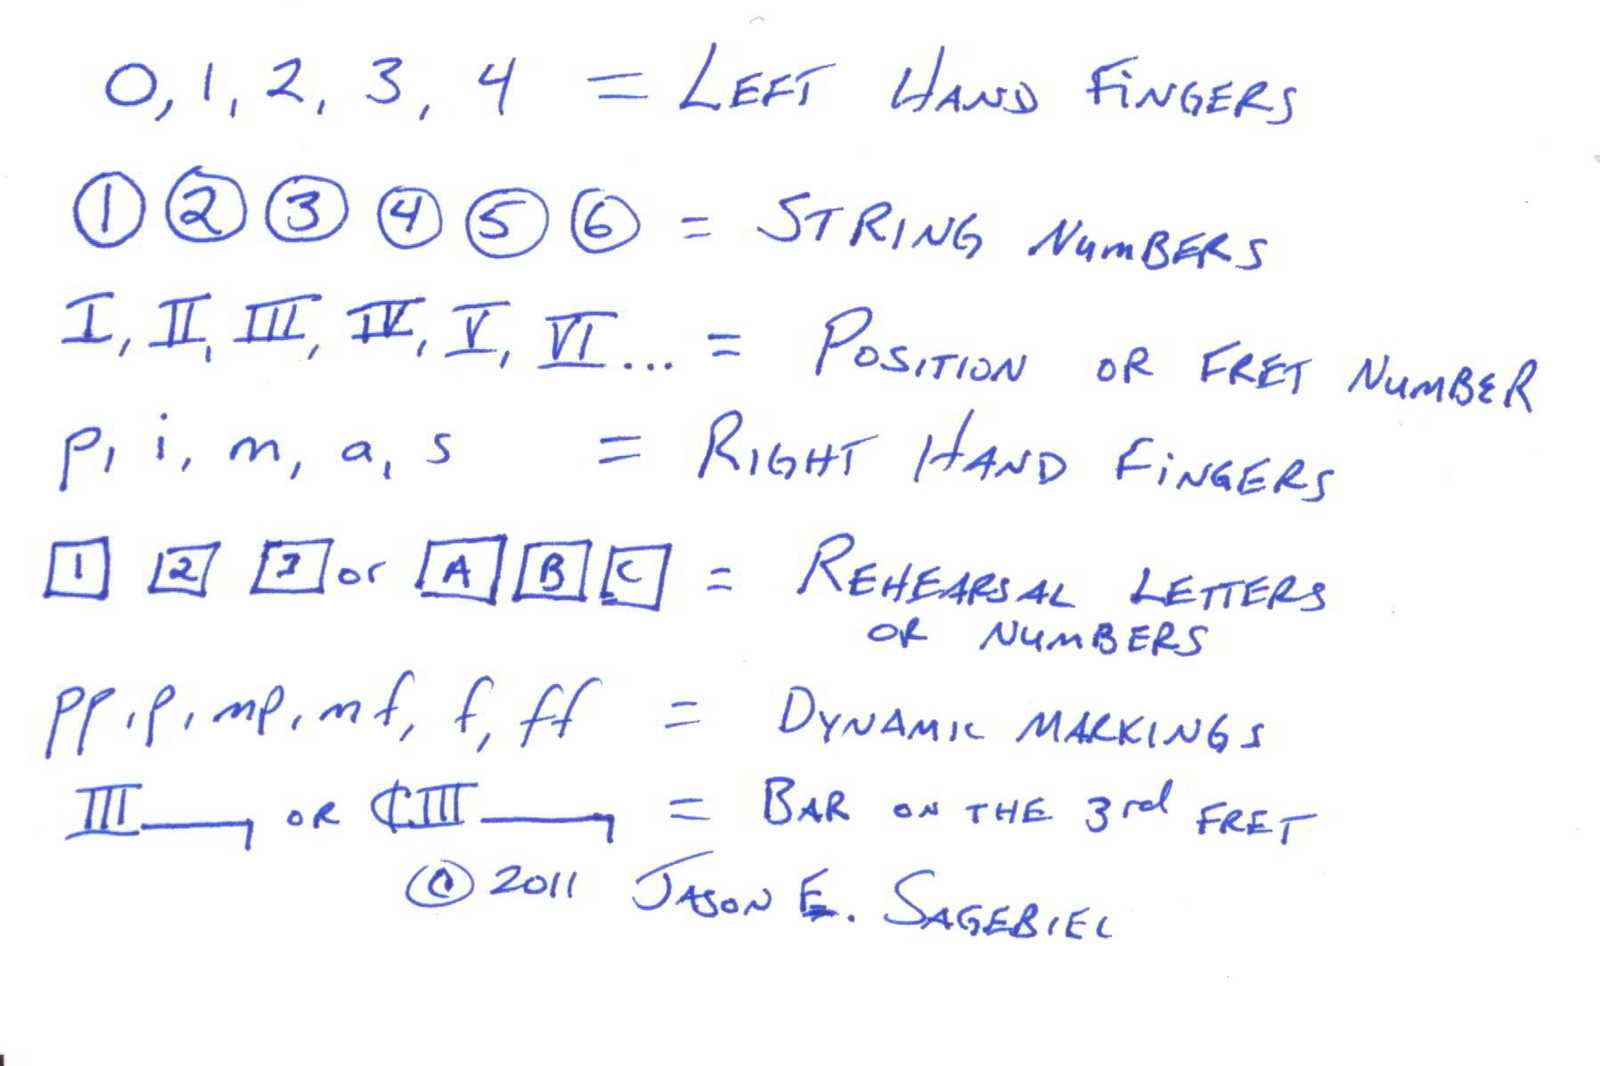 0, 1, 2, 3, 4 = LEFT HAND FiNGERS
① ② ③ ④ ⑤ ⑥ = STRING NUMBERS
I, II, III, IV, V, VI... = POSITION OR FRET NUMBER
p, i, m, a, s = RIGHT HAND FiNGERS
1 2 3 or A B C = REHEARSAL LETTERS
OR NUMBERS
pp, p, mp, mf, f, ff = DYNAMIC MARKINGS
III OR ₵III = BAR ON THE 3rd FRET
© 2011 JASON E. SAGEBIEL